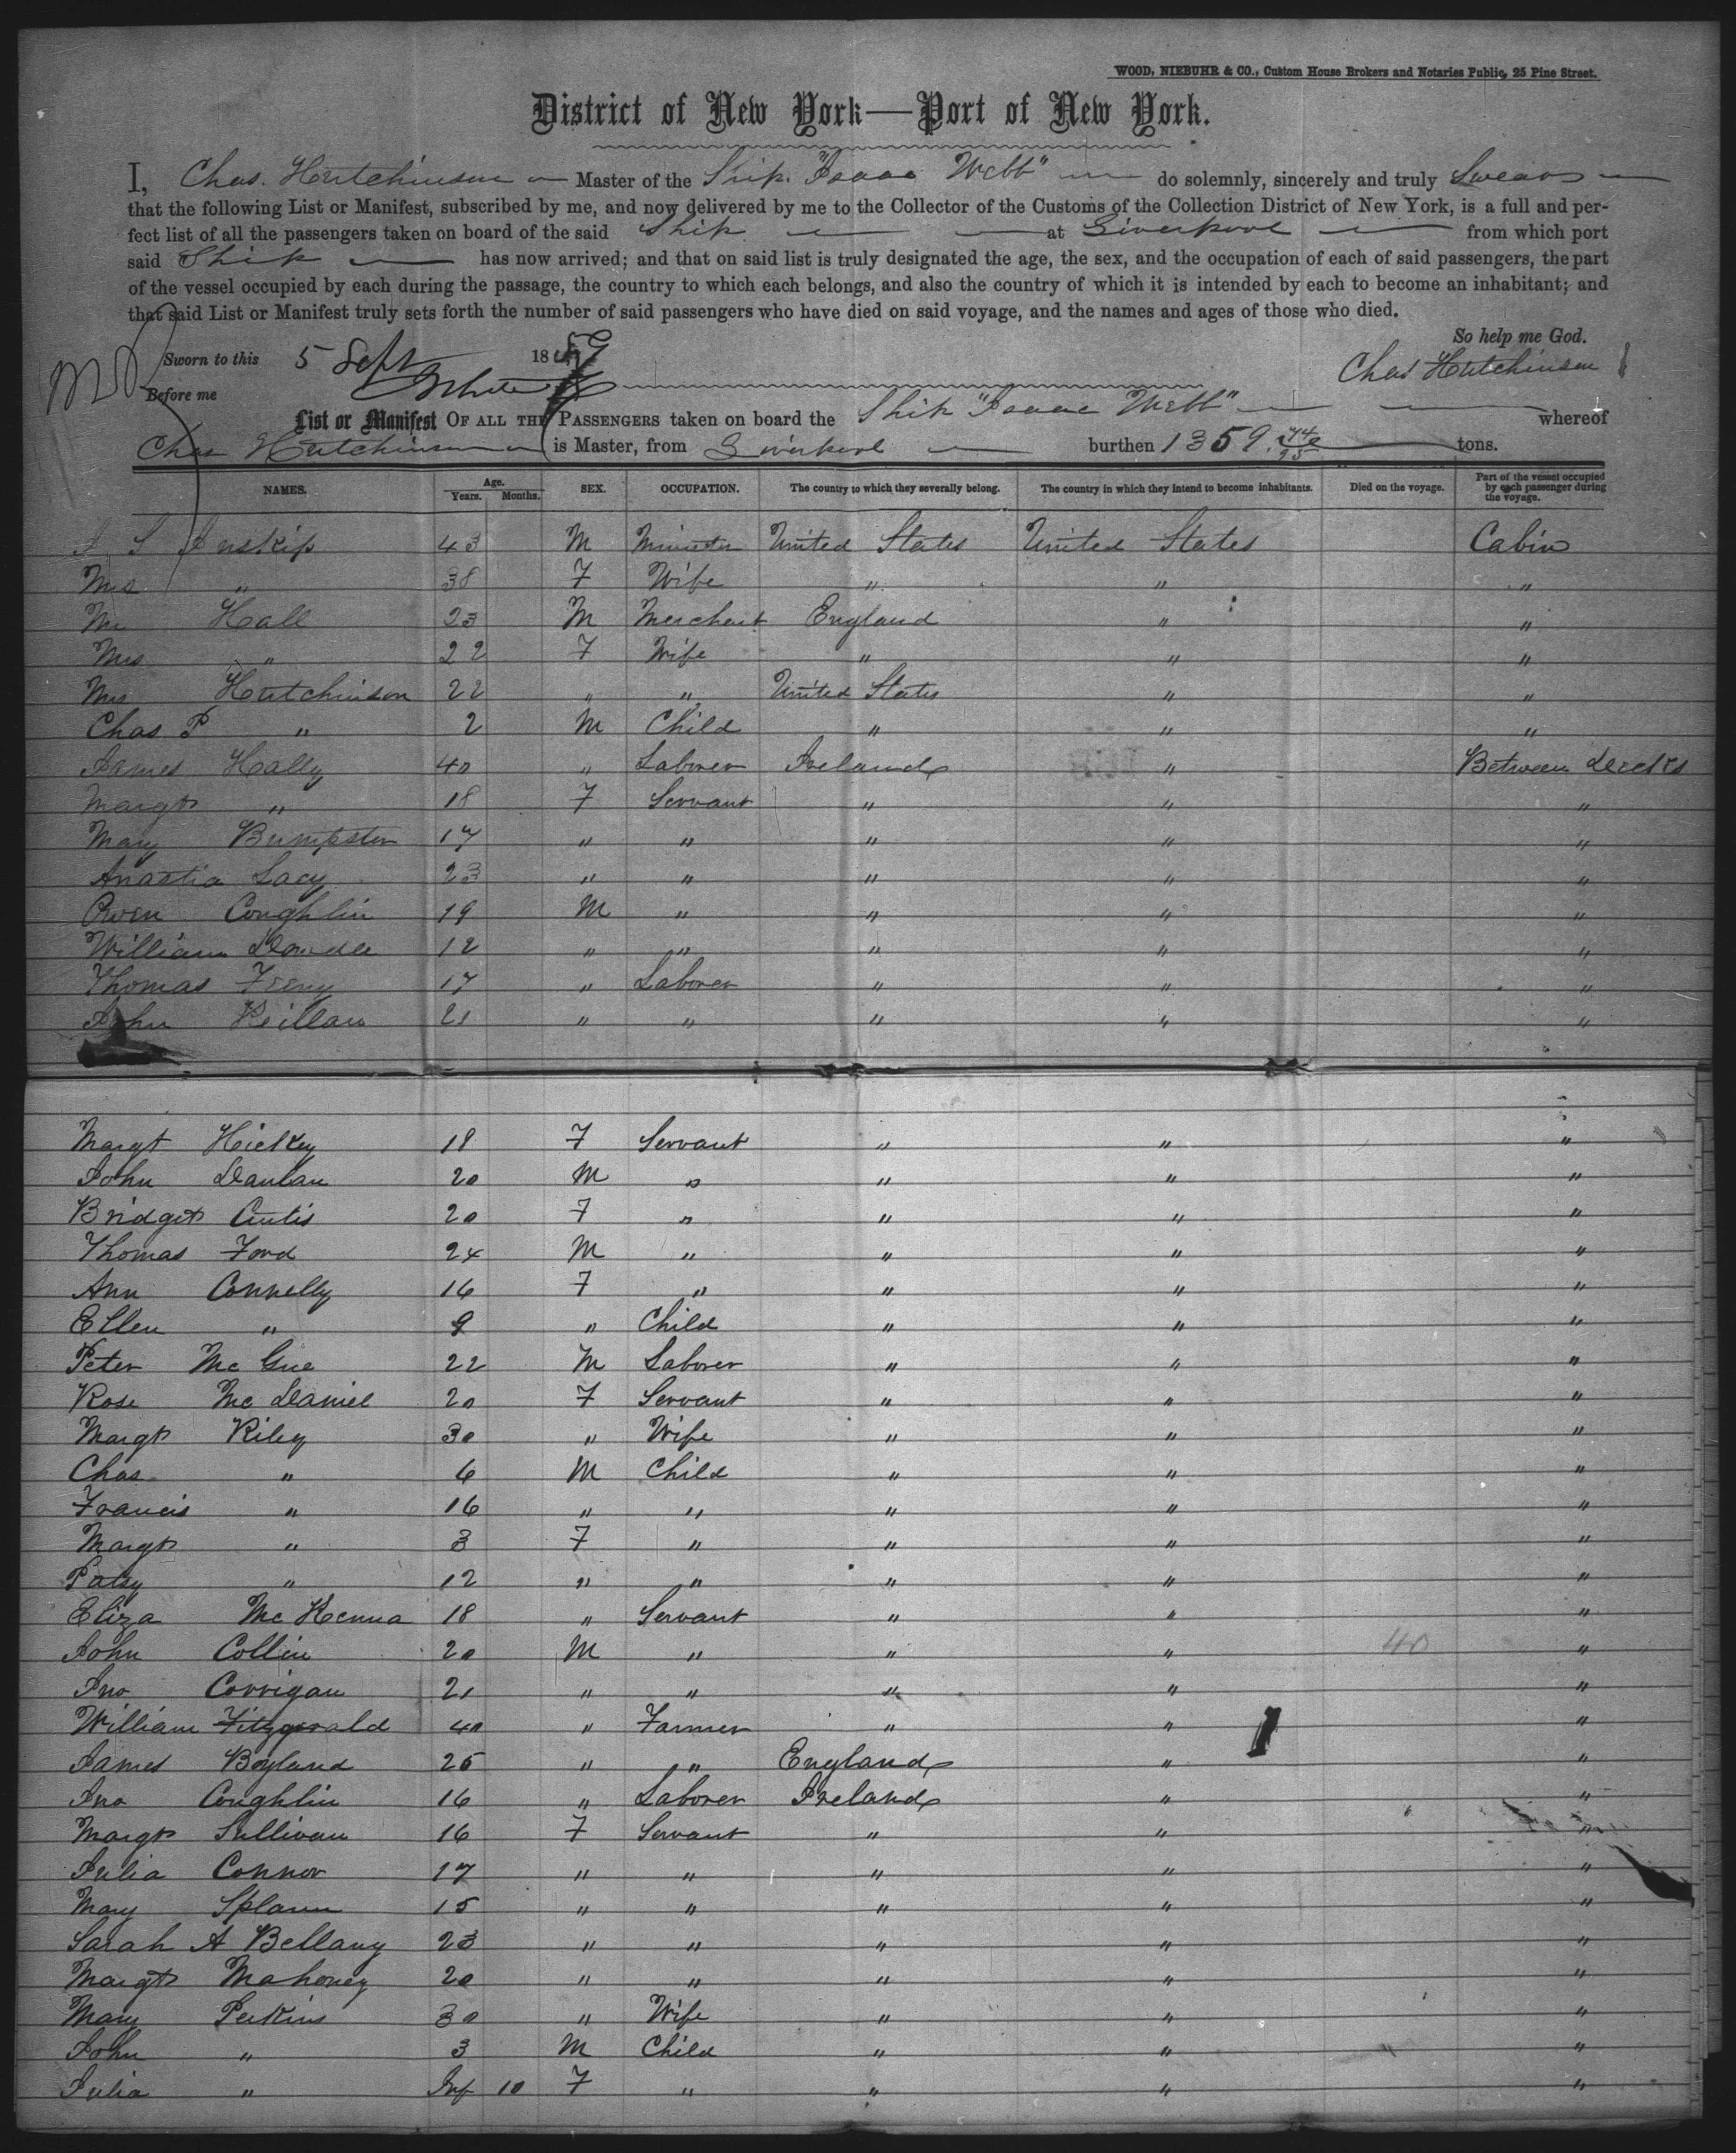 WOOD, NIEBUHR & CO., Custom House Brokers and Notaries Public, 25 Pine Street.
District of New York—Port of New York.
I, Chas. Hutchinson Master of the Ship "Isaac Webb" do solemnly, sincerely and truly Swear
that the following List or Manifest, subscribed by me, and now delivered by me to the Collector of the Customs of the Collection District of New York, is a full and per-
fect list of all the passengers taken on board of the said Ship at Liverpool from which port
said Ship has now arrived; and that on said list is truly designated the age, the sex, and the occupation of each of said passengers, the part
of the vessel occupied by each during the passage, the country to which each belongs, and also the country of which it is intended by each to become an inhabitant; and
that said List or Manifest truly sets forth the number of said passengers who have died on said voyage, and the names and ages of those who died.
So help me God.
Sworn to this 5 Sept 1859
Chas Hutchinson
Before me White
List or Manifest OF ALL THE PASSENGERS taken on board the Ship "Isaac Webb" whereof
Chas Hutchinson is Master, from Liverpool burthen 1359 74/95 tons.
NAMES. Age. Years. Months. SEX. OCCUPATION. The country to which they severally belong. The country in which they intend to become inhabitants. Died on the voyage. Part of the vessel occupied by each passenger during the voyage.
S Inskip 43 M Minister United States United States Cabin
Mrs " 38 F Wife " " "
Mr Hall 23 M Merchant England " "
Mrs " 22 F Wife " " "
Mrs Hutchinson 22 " " United States " "
Chas P " 2 M Child " " "
James Hally 40 " Laborer Ireland " Between Decks
Margt " 18 F Servant " " "
Mary Bumpston 17 " " " " "
Anastia Lacy 23 " " " " "
Owen Coughlin 19 M " " " "
William Dowdle 12 " " " " "
Thomas Feeny 17 " Laborer " " "
John Keillan 21 " " " " "
Margt Hickey 18 F Servant " " "
John Danlan 20 M " " " "
Bridget Curtis 20 F " " " "
Thomas Ford 24 M " " " "
Ann Connelly 16 F " " " "
Ellen " 9 " Child " " "
Peter Mc Gue 22 M Laborer " " "
Rose Mc Daniel 20 F Servant " " "
Margt Riley 30 " Wife " " "
Chas " 6 M Child " " "
Francis " 16 " " " " "
Margt " 3 F " " " "
Patsy " 12 " " " " "
Eliza Mc Kenna 18 " Servant " " "
John Collin 20 M " " " 40 "
Jno Corrigan 21 " " " " "
William Fitzgerald 40 " Farmer " " "
James Boyland 25 " " England " "
Jno Coughlin 16 " Laborer Ireland " "
Margt Sullivan 16 F Servant " " "
Julia Connor 17 " " " " "
Mary Splann 15 " " " " "
Sarah A Bellany 23 " " " " "
Margt Mahoney 20 " " " " "
Mary Perkins 30 " Wife " " "
John " 3 M Child " " "
Julia " Inf 10 F " " " "